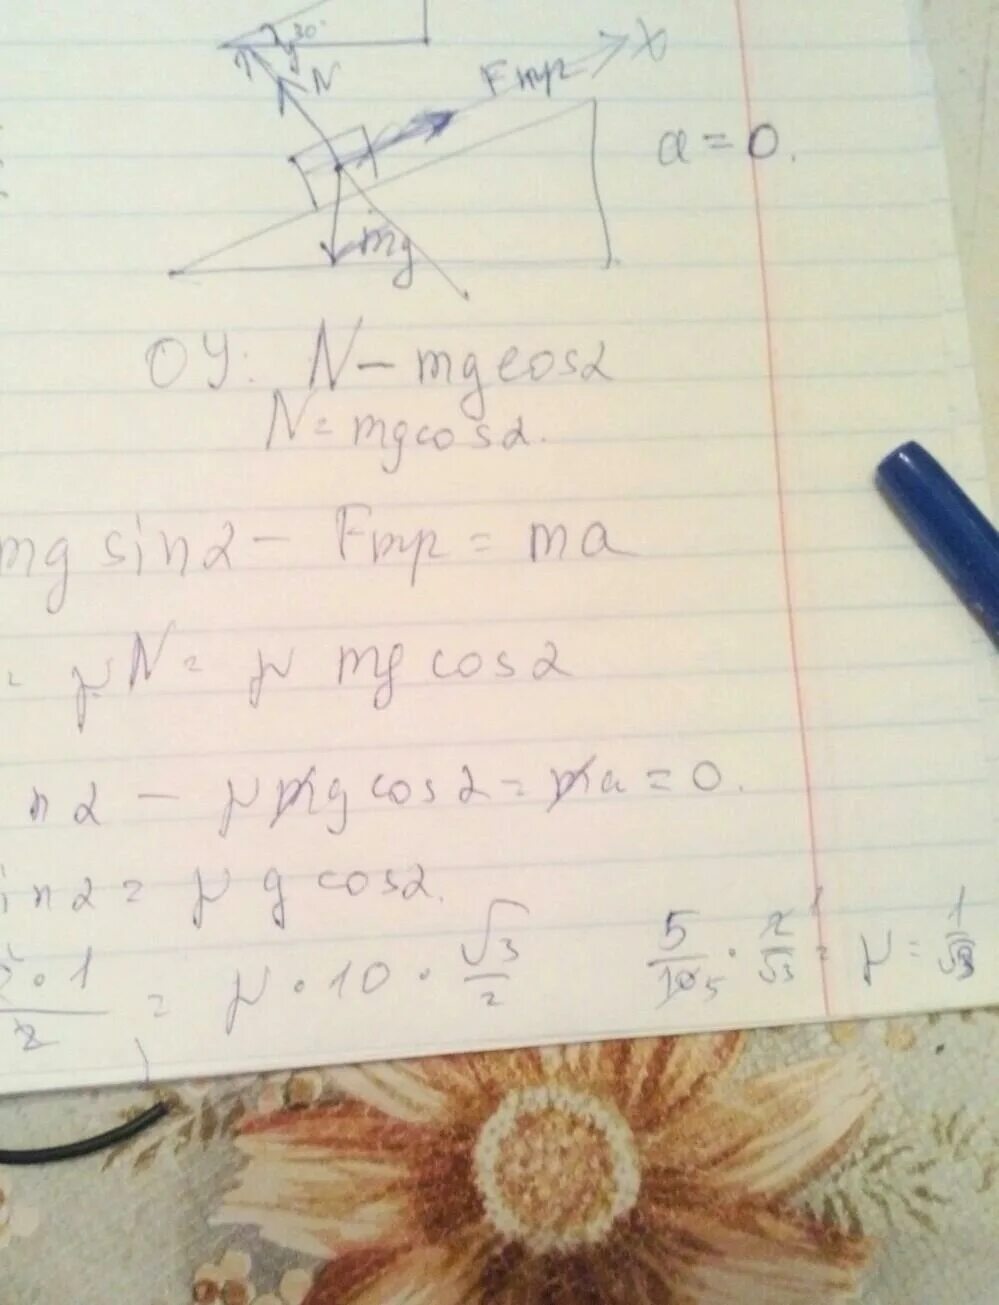 30°
y
N
Fтр
X
a = 0.
mg
OY: N – mg cosα
N = mg cosα.
mg sinα – Fтр = ma
= μN = μ mg cosα
nα – μmg cosα = ma = 0.
inα = μ g cosα.
· 1 / 2 = μ · 10 · √3/2 5/10 5 · 2/√3 1 = μ = 1/√3